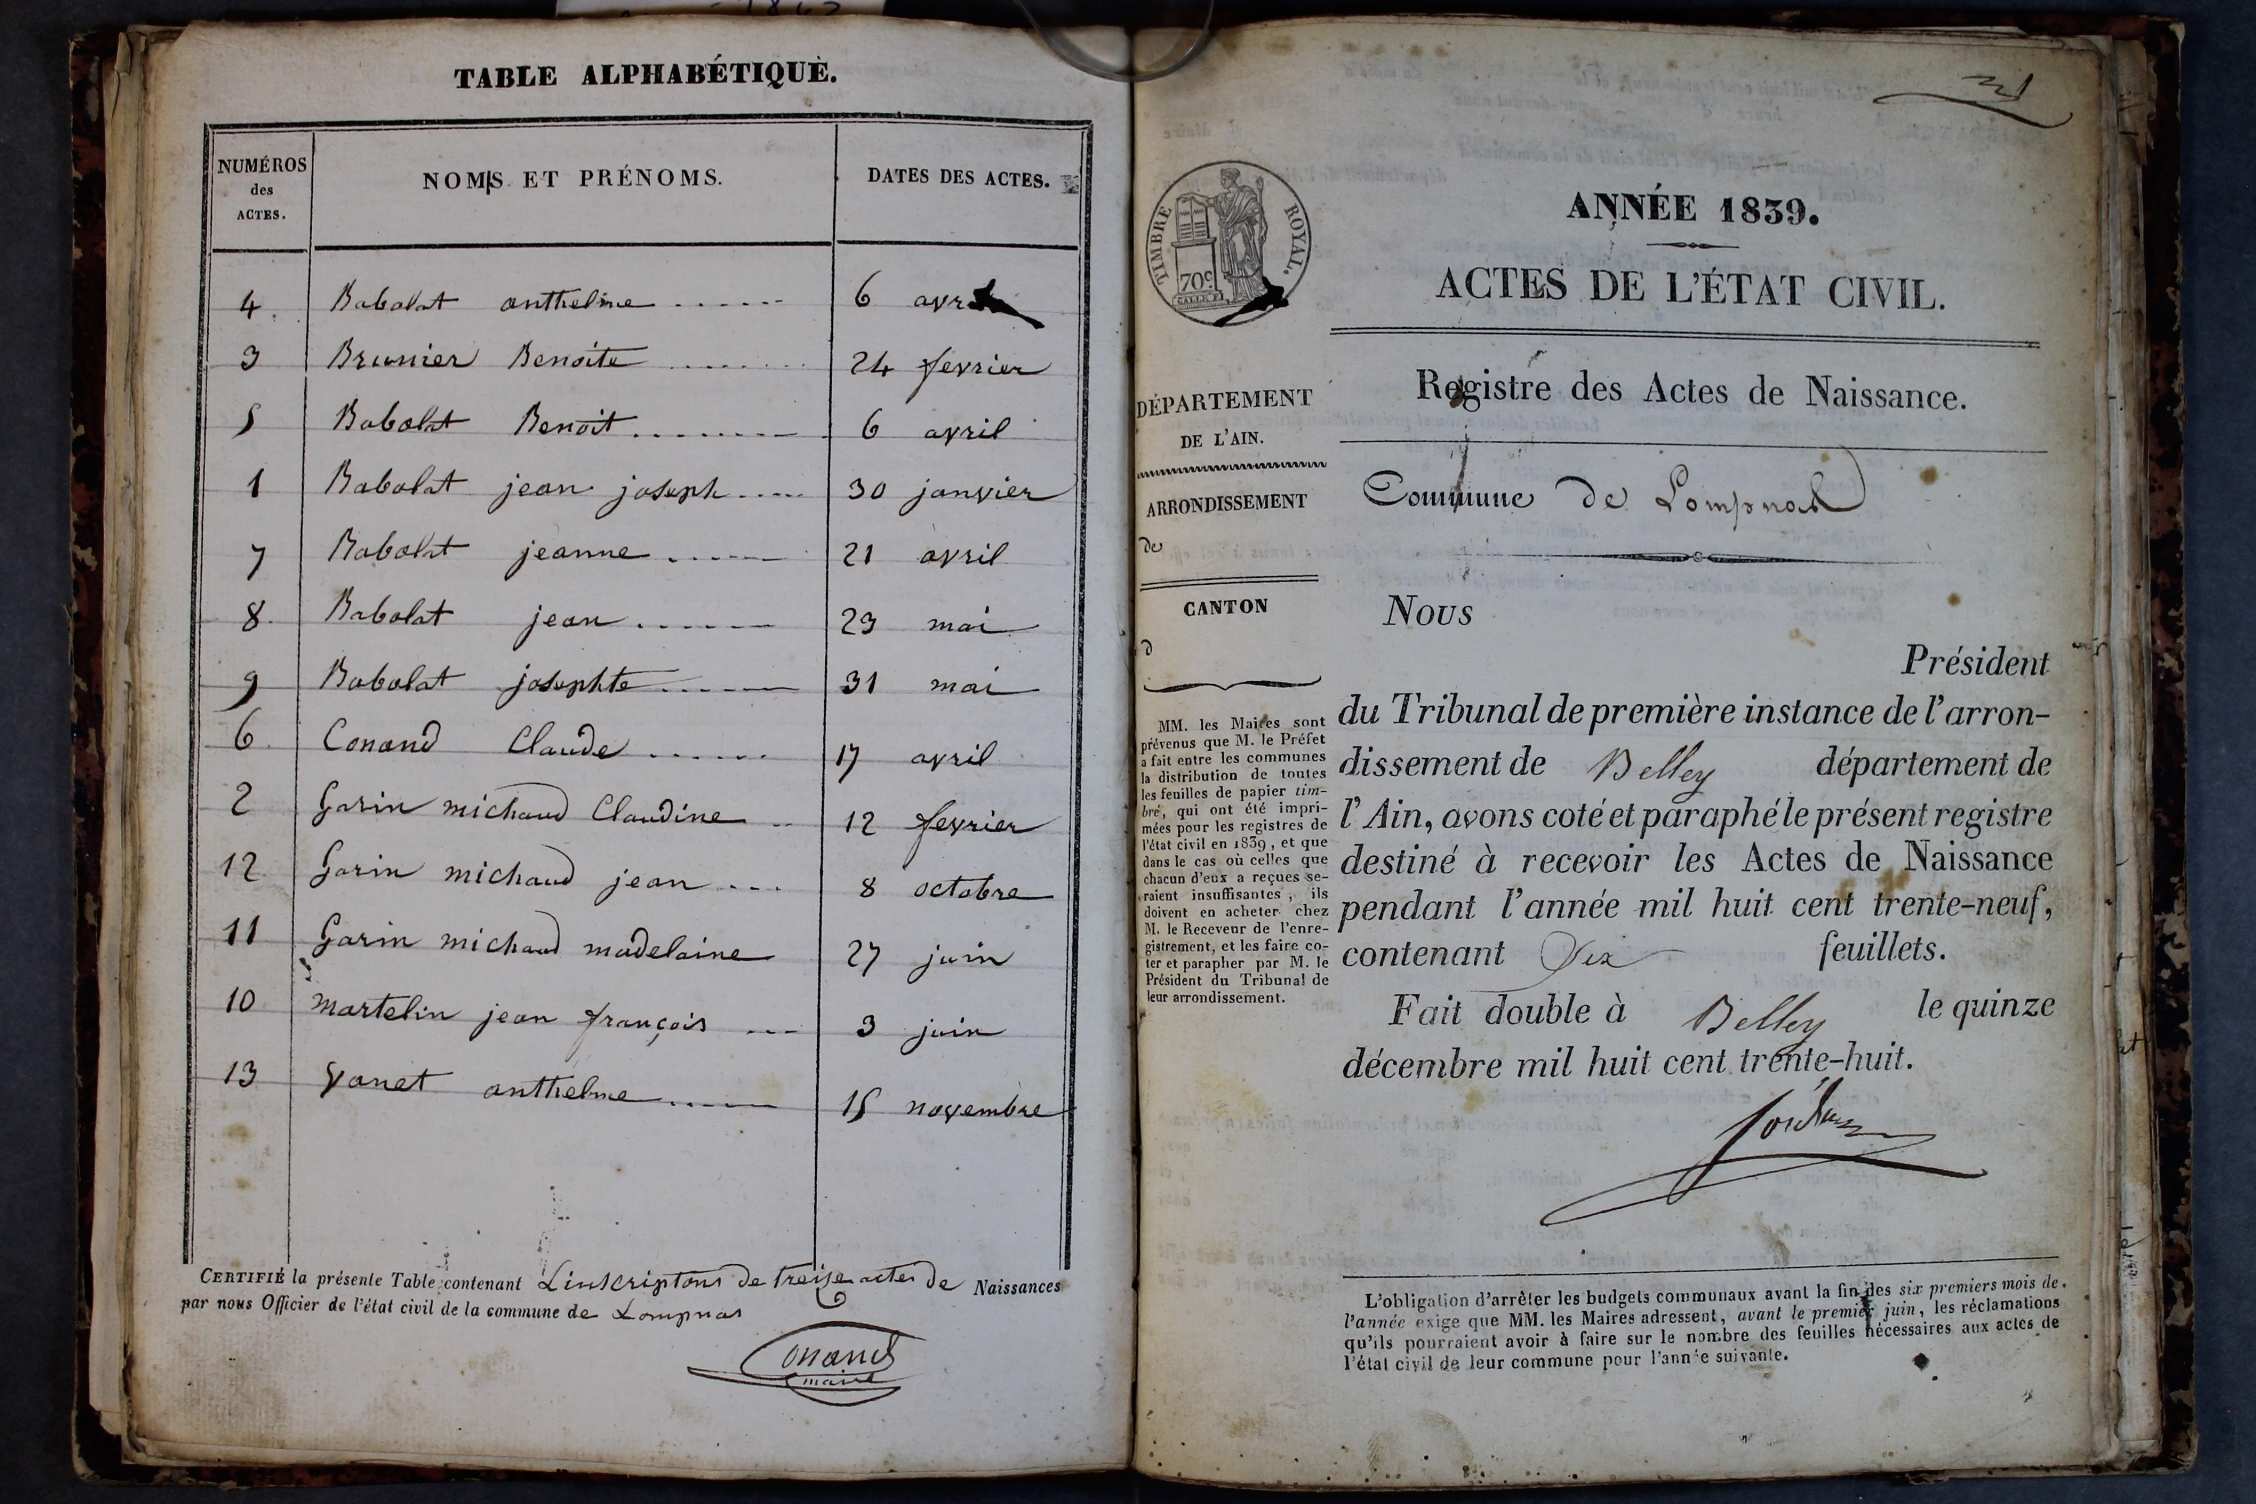 TABLE ALPHABÉTIQUE.
NUMÉROS
des
ACTES.
NOMS ET PRÉNOMS.
DATES DES ACTES.
4 Babolat anthelme 6 avril
3 Brunier Benoite 24 fevrier
5 Babolat Benoit 6 avril
1 Babolat jean joseph 30 janvier
7 Babolat jeanne 21 avril
8 Babolat jean 23 mai
9 Babolat josephte 31 mai
6 Conand Claude 17 avril
2 Garin michaud Claudine 12 fevrier
12 Garin michaud jean 8 octobre
11 Garin michaud madelaine 27 juin
10 martelin jean françois 3 juin
13 Vanet anthelme 15 novembre
CERTIFIÉ la présente Table contenant L'inscriptons de treize actes de Naissances
par nous Officier de l'état civil de la commune de Lompnas
Conand
maire
TIMBRE ROYAL.
70c
ANNÉE 1839.
ACTES DE L'ÉTAT CIVIL.
Registre des Actes de Naissance.
DÉPARTEMENT
DE L'AIN.
ARRONDISSEMENT
de
CANTON
d
MM. les Maires sont
prévenus que M. le Préfet
a fait entre les communes
la distribution de toutes
les feuilles de papier tim-
bré, qui ont été impri-
mées pour les registres de
l'état civil en 1839, et que
dans le cas où celles que
chacun d'eux a reçues se-
raient insuffisantes, ils
doivent en acheter chez
M. le Receveur de l'enre-
gistrement, et les faire co-
ter et parapher par M. le
Président du Tribunal de
leur arrondissement.
Commune de Lompnas
Nous
Président
du Tribunal de première instance de l'arron-
dissement de Belley département de
l'Ain, avons coté et paraphé le présent registre
destiné à recevoir les Actes de Naissance
pendant l'année mil huit cent trente-neuf,
contenant Six feuillets.
Fait double à Belley le quinze
décembre mil huit cent trente-huit.
L'obligation d'arrêter les budgets communaux avant la fin des six premiers mois de
l'année exige que MM. les Maires adressent, avant le premier juin, les réclamations
qu'ils pourraient avoir à faire sur le nombre des feuilles nécessaires aux actes de
l'état civil de leur commune pour l'année suivante.